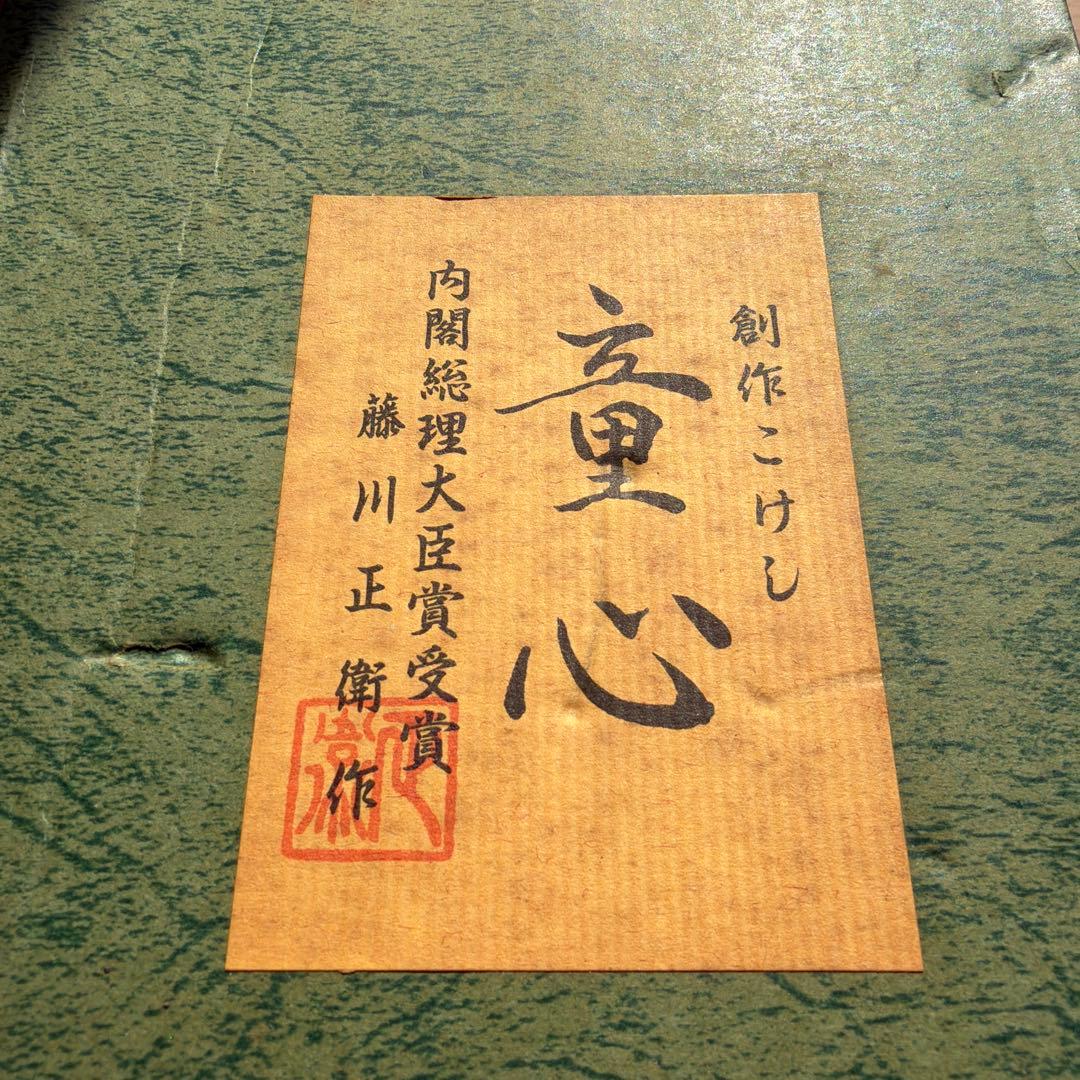 創作こけし
童心
内閣総理大臣賞受賞
藤川正衛作
正衛